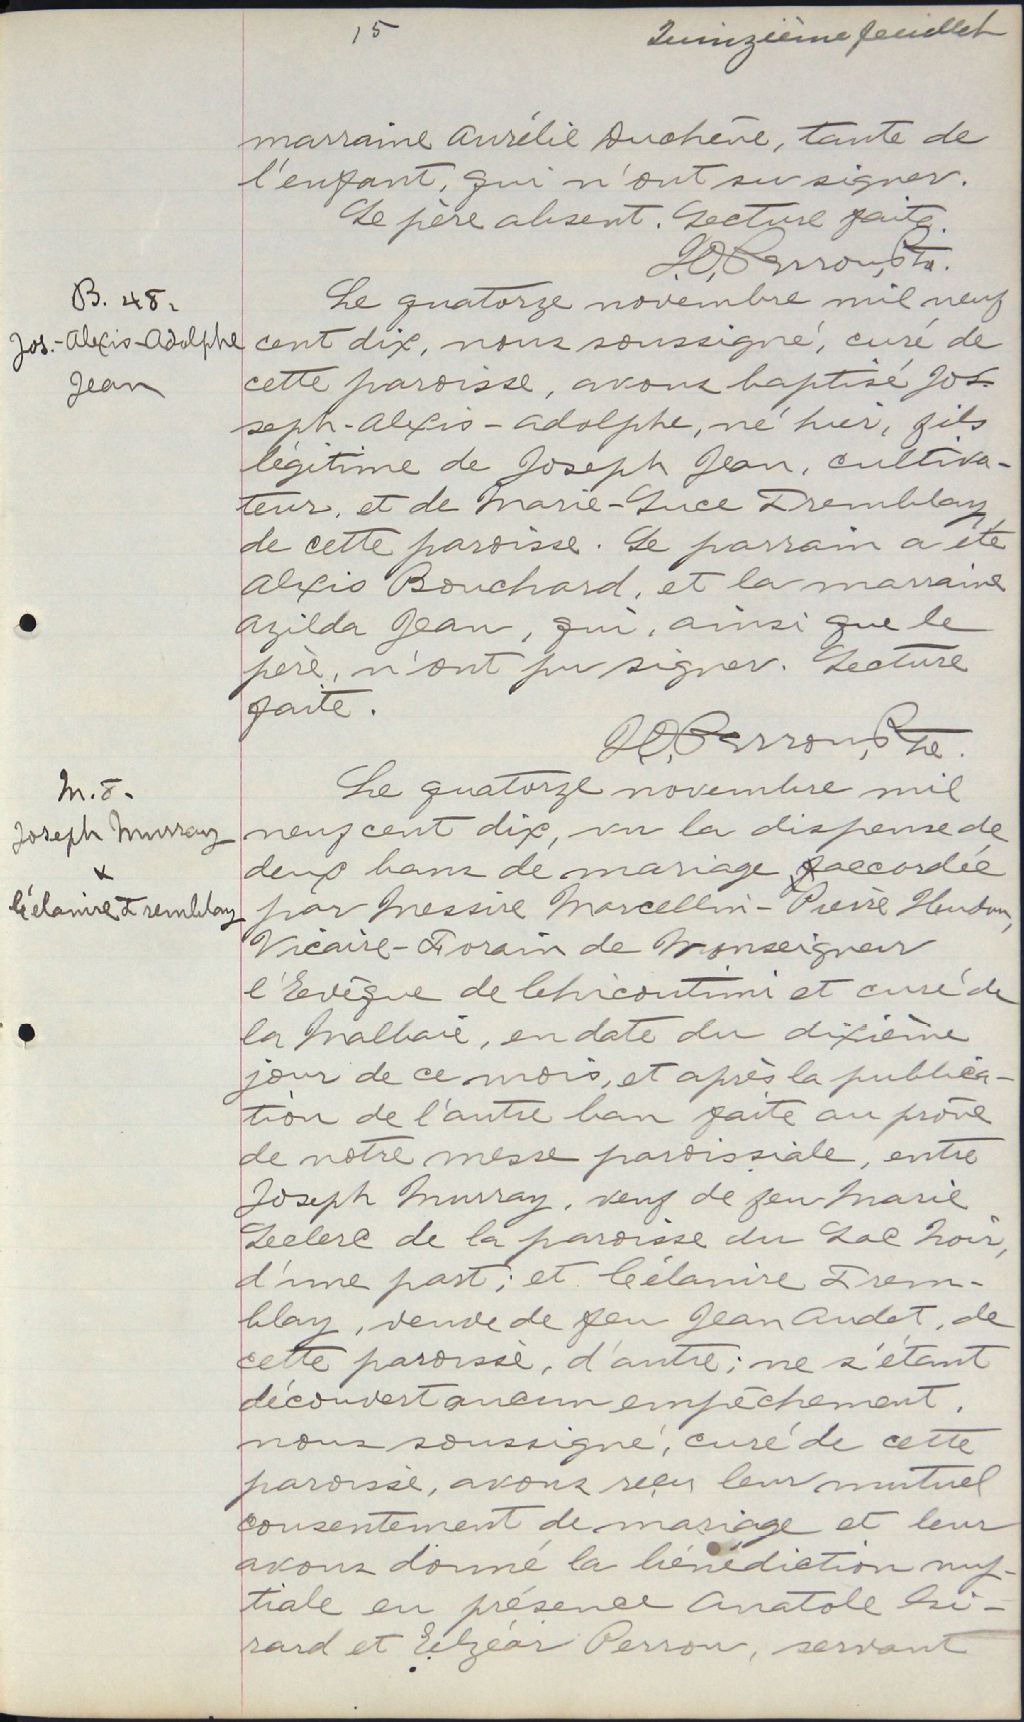 15
Quinzième feuillet
marraine Aurélie Duchêne, tante de
l'enfant, qui n'ont su signer.
Le père absent. Lecture faite.
J.O. Perron, Ptre.
B. 48.
Jos.-Alexis-Adolphe
Jean
Le quatorze novembre mil neuf
cent dix, nous soussigné, curé de
cette paroisse, avons baptisé Jos-
seph-Alexis-Adolphe, né hier, fils
légitime de Joseph Jean, cultiva-
teur, et de Marie-Luce Tremblay
de cette paroisse. Le parrain a été
Alexis Bouchard, et la marraine
Azilda Jean, qui, ainsi que le
père, n'ont pu signer. Lecture
faite.
J.O. Perron, Ptre.
M. 8.
Joseph Murray
x
Célanire Tremblay
Le quatorze novembre mil
neuf cent dix, vu la dispense de
deux bans de mariage accordée
par Messire Marcellin-Pierre Hudon,
Vicaire-Forain de Monseigneur
l'Evêque de Chicoutimi et curé de
la Malbaie, en date du dixième
jour de ce mois, et après la publica-
tion de l'autre ban faite au prône
de notre messe paroissiale, entre
Joseph Murray, veuf de feu Marie
Leclerc de la paroisse du Lac Noir,
d'une part; et Célanire Trem-
blay, veuve de feu Jean Audet, de
cette paroisse, d'autre; ne s'étant
découvert aucun empêchement,
nous soussigné, curé de cette
paroisse, avons reçu leur mutuel
consentement de mariage et leur
avons donné la bénédiction nup-
tiale en présence Anatole Gi-
rard et Elzéar Perron, servant